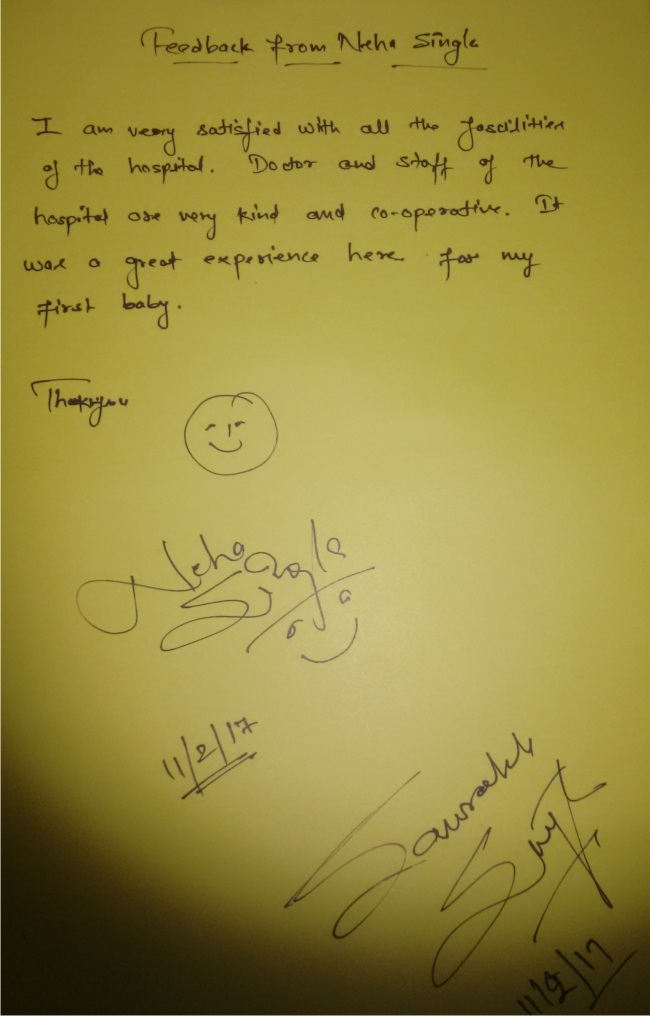 Feedback from Neha Singla
I am very satisfied with all the fascilities
of the hospital. Doctor and staff of the
hospital are very kind and co-operative. It
was a great experience here for my
first baby.
Thankyou
Neha
Singla
11/2/17
Saurabh
11/2/17